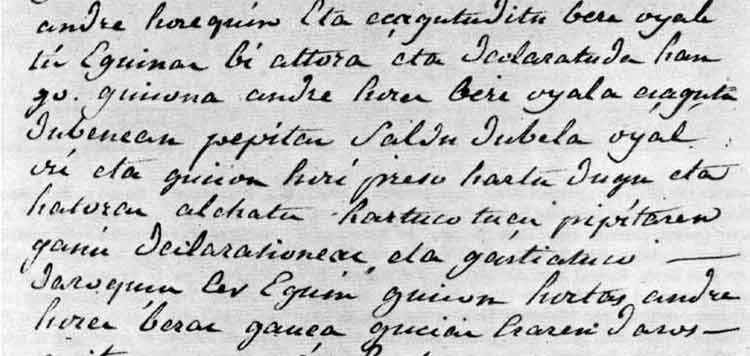 andre horequin Eta eçagutuditu bere oyala
tu Eguinac bi attora eta declaratuda han
go. guiçona andre horec bere oyala eçagutu
dubenean pepitac Saldu dubela oyal
ori eta guiçon hori preso hartu dugu eta
hatorac alchatu hartucotuçu pipitaren
ganic declarationeac, eta gastiatuco —
daroquin cer Eguin guiçon hortas andre
horec berac gauça guciac haren daros—